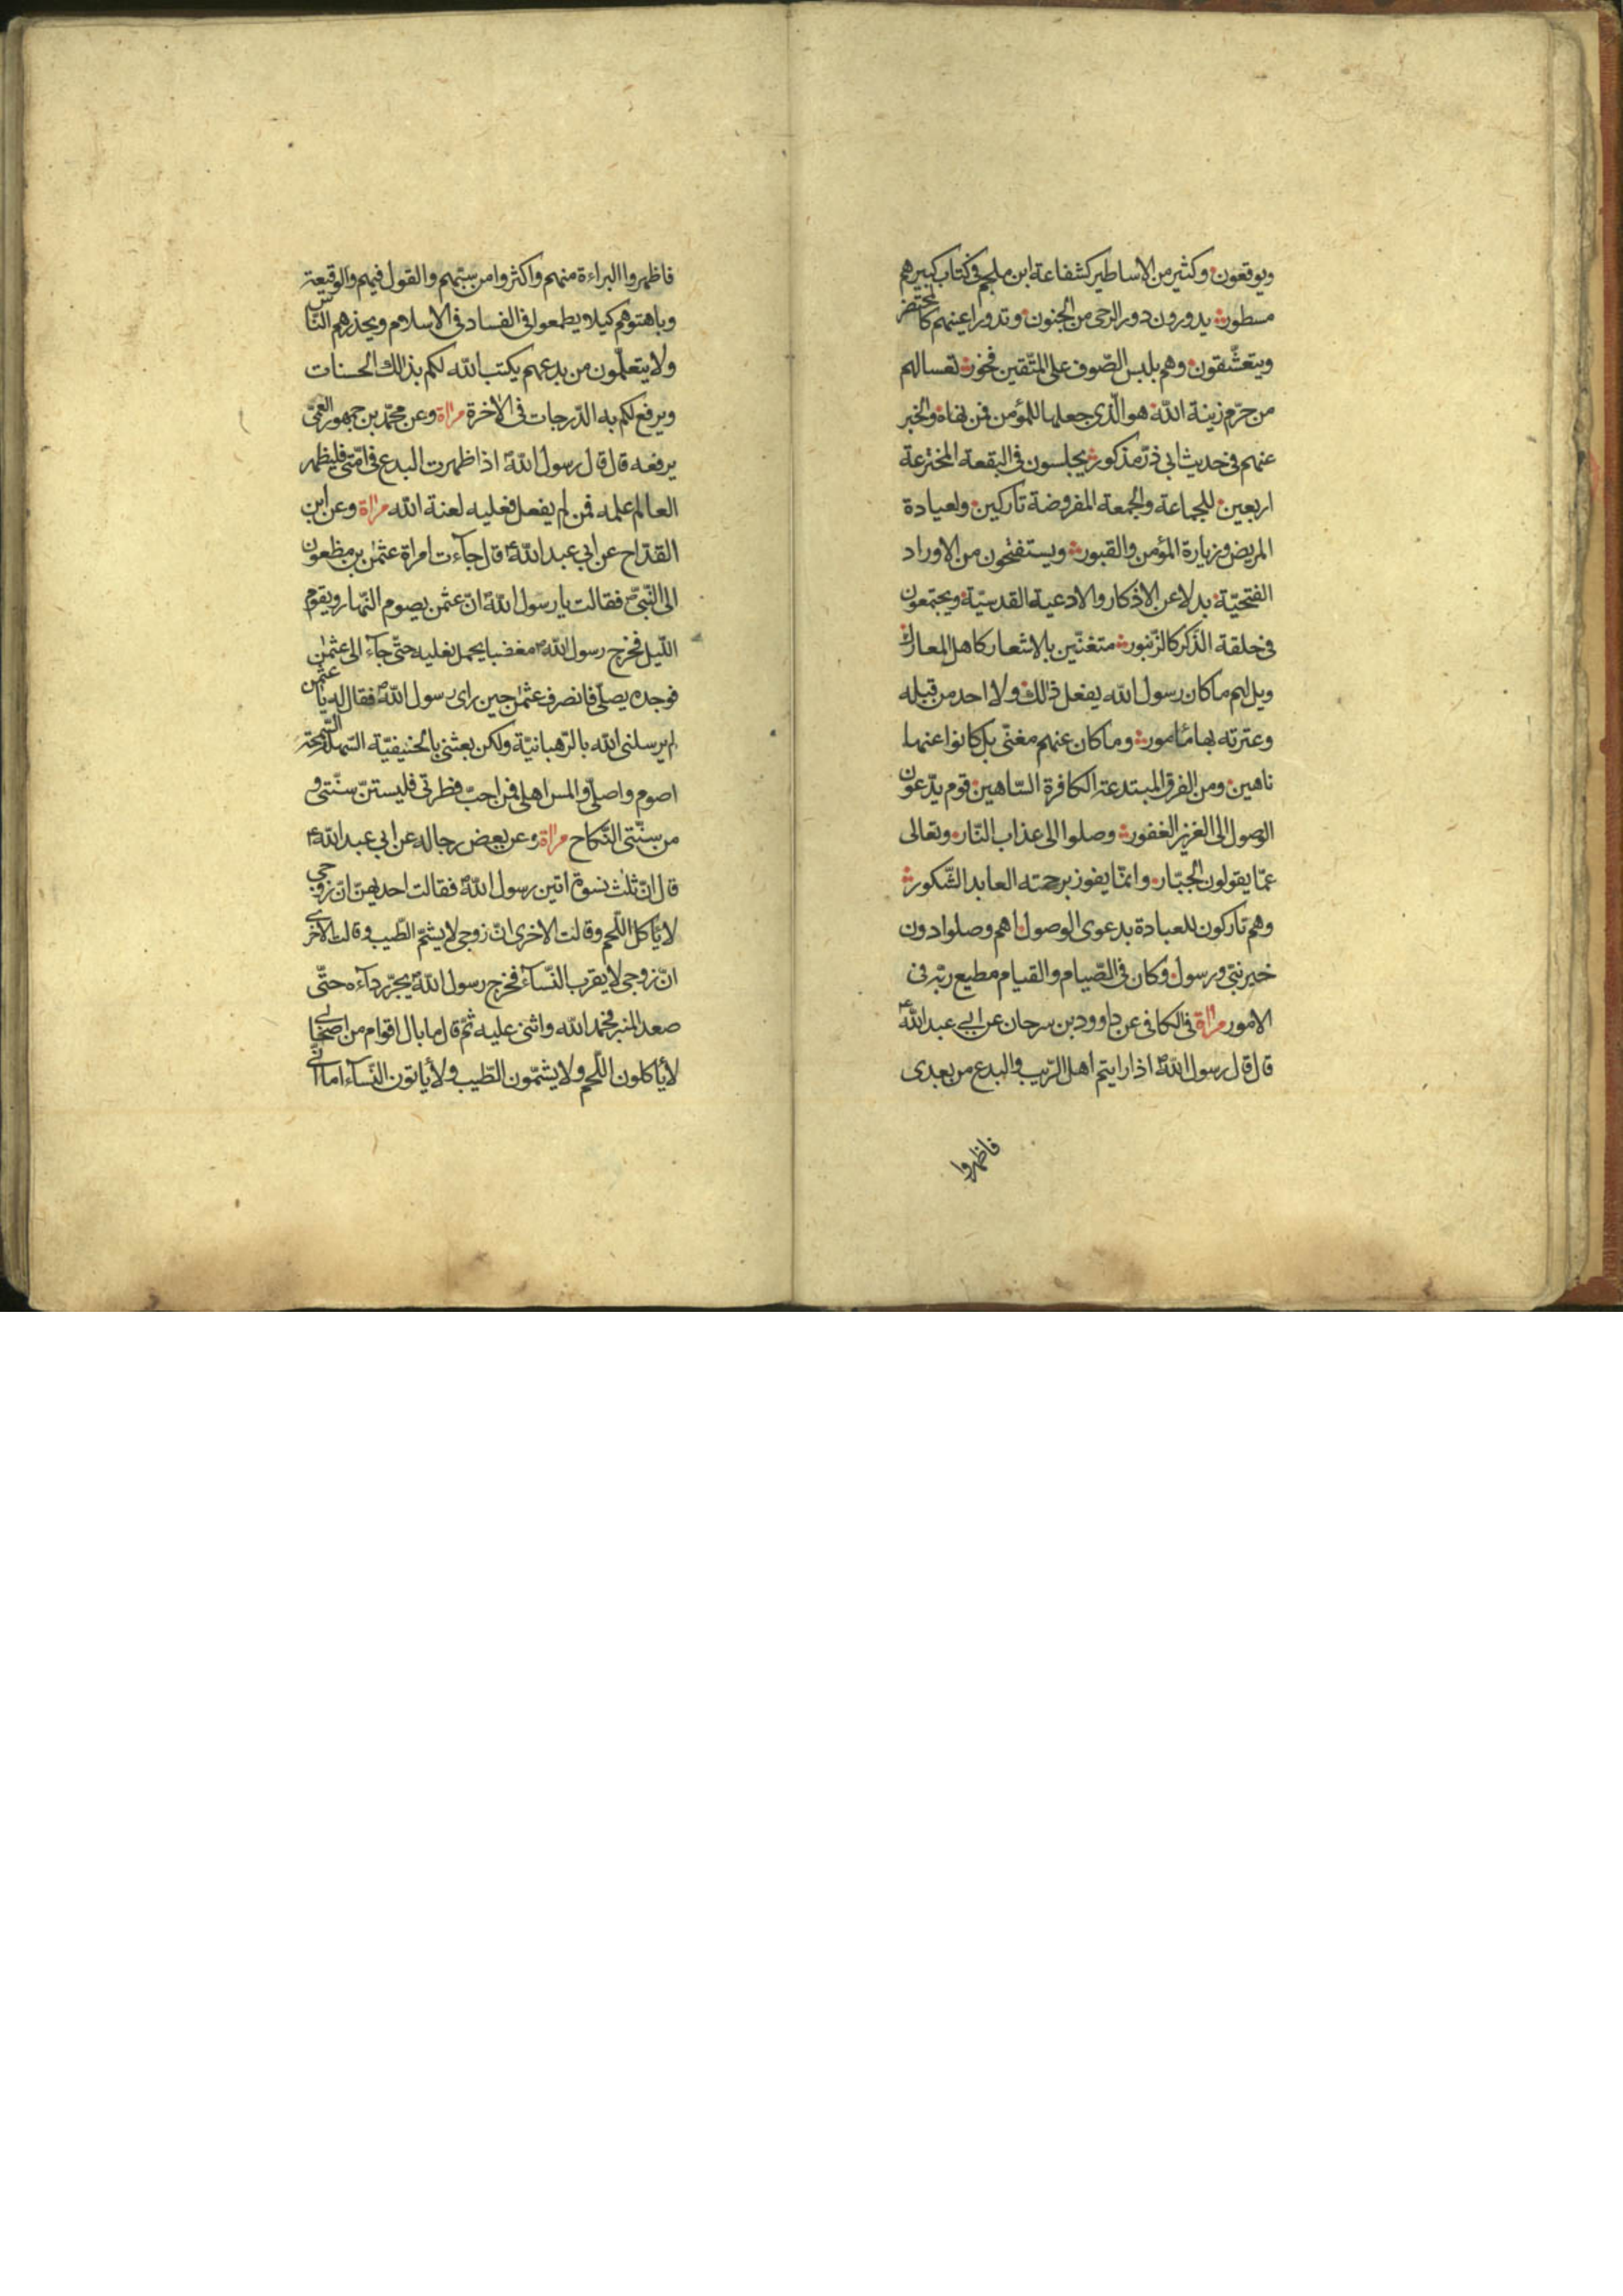 ويوقعون وكثير من الاساطير كشفاعة ابن ملجم فى كتاب كبيرهم
مسطور يدورون دور الرحى من الجنون وتدور اعينهم كالمحتضر
ويتعشّقون وهم بلبس الصّوف على المتّقين فخور تعسا لهم
من حرّم زينة اللّه هو الّذى جعلها للمؤمن فمن نهاه والخبر
عنهم فى حديث ابى ذرّ مذكور يجلسون فى البقعة المخترعة
اربعين للجماعة والجمعة المفروضة تاركين ولعيادة
المريض وزيارة المؤمن والقبور ويستفتحون من الاوراد
الفتحيّة بدلا عن الاذكار والادعية القدسيّة ويجتمعون
فى حلقة الذّكر كالزّنبور متغنّين بالاشعار كاهل المعارك
ويل لهم ما كان رسول اللّه يفعل ذلك ولا احد من قبله
وعترته بها مأمور وما كان عنهم مغنّى بل كانوا عنها
ناهين ومن الفرق المبتدعة الكافرة السّاهين قوم يدّعون
الوصول الى العزيز الغفور وصلوا الى عذاب النّار وتعالى
عمّا يقولون الجبّار وانمّا يفوز برحمته العابد الشّكور
وهم تاركون للعبادة بدعوى الوصول اهم وصلوا دون
خير نبىّ ورسول وكان فى الصّيام والقيام مطيع ربّه فى
الامور مرآة فى الكافى عن داوود بن سرحان عن ابى عبد اللّه ع
قال قال رسول اللّه ص اذا رايتم اهل الرّيب والبدع من بعدى
فاظهروا
فاظهروا البراءة منهم واكثروا من سبّهم والقول فيهم والوقيعة
وباهتوهم كيلا يطمعوا فى الفساد فى الاسلام ويحذرهم النّاس
ولا يتعلّمون من بدعهم يكتب اللّه لكم بذلك الحسنات
ويرفع لكم به الدّرجات فى الاخرة مرآة وعن محمّد بن جمهور العمّى
يرفعه قال قال رسول اللّه ص اذا ظهرت البدع فى امّتى فليظهر
العالم علمه فمن لم يفعل فعليه لعنة اللّه مرآة وعن ابن
القدّاح عن ابى عبد اللّه ع قال جآءت امراة عثمن بن مظعون
الى النّبىّ ص فقالت يا رسول اللّه انّ عثمن يصوم النّهار ويقوم
اللّيل فخرج رسول اللّه ص مغضبا يحمل نعليه حتّى جآء الى عثمن
فوجده يصلّى فانصرف عثمن حين راى رسول اللّه ص فقال له يا عثمن
لم يرسلنى اللّه بالرّهبانيّة ولكن بعثنى بالحنيفيّة السّهلة السّمحة
اصوم واصلّى والمس اهلى فمن احبّ فطرتى فليستنّ بسنّتى و
من سنّتى النّكاح مرآة وعن بعض رجاله عن ابى عبد اللّه ع
قال انّ ثلث نسوة اتين رسول اللّه ص فقالت احديهنّ انّ زوجى
لا يأكل اللّحم وقالت الاخرى انّ زوجى لا يشمّ الطّيب وقالت الاخرى
انّ زوجى لا يقرب النّسآء فخرج رسول اللّه ص يجرّ ردآءه حتّى
صعد المنبر فحمد اللّه واثنى عليه ثمّ قال ما بال اقوام من اصحابى
لا يأكلون اللّحم ولا يشمّون الطّيب ولا يأتون النّسآء اما انّى